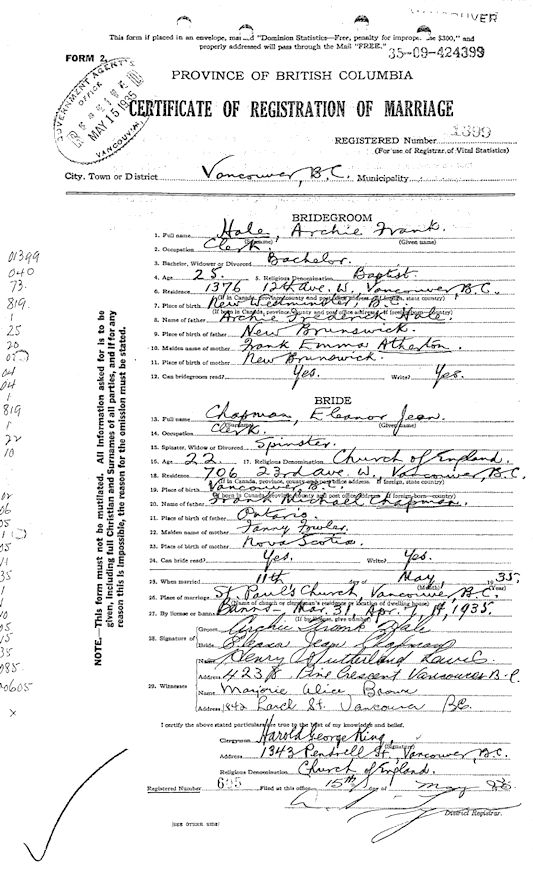 VANCOUVER
This form if placed in an envelope, marked "Dominion Statistics—Free, penalty for improper use $300," and
properly addressed will pass through the Mail "FREE."
35-09-424399
FORM 2.
PROVINCE OF BRITISH COLUMBIA
GOVERNMENT AGENT'S OFFICE
MAY 15 1935
VANCOUVER
CERTIFICATE OF REGISTRATION OF MARRIAGE
REGISTERED Number 1399
(For use of Registrar of Vital Statistics)
City, Town or District Vancouver, B.C. Municipality
BRIDEGROOM
1. Full name Hale, Archie Frank.
(Surname) (Given name)
2. Occupation Clerk
3. Bachelor, Widower or Divorced Bachelor.
4. Age 25. 5. Religious Denomination Baptist.
6. Residence 1376 12th Ave. W., Vancouver, B.C.
(If in Canada, province, county and post office address. If foreign, state country)
7. Place of birth New Westminster, B.C.
(If born in Canada, province, county and post office address. If foreign, country)
8. Name of father Archie Frederick Hale.
9. Place of birth of father New Brunswick.
10. Maiden name of mother Frank Emma Atherton.
11. Place of birth of mother New Brunswick.
12. Can bridegroom read? Yes. Write? Yes.
BRIDE
13. Full name Chapman, Eleanor Jean.
(Surname) (Given name)
14. Occupation Clerk.
15. Spinster, Widow or Divorced Spinster.
16. Age 22. 17. Religious Denomination Church of England.
18. Residence 706 23rd Ave. W., Vancouver, B.C.
(If in Canada, province, county and post office address. If foreign, state country)
19. Place of birth Vancouver, B.C.
(If born in Canada, province, county and post office address. If foreign born—country)
20. Name of father Frank Michael Chapman.
21. Place of birth of father Ontario.
22. Maiden name of mother Fanny Fowler.
23. Place of birth of mother Nova Scotia.
24. Can bride read? Yes. Write? Yes.
25. When married 11th day of May, 1935.
(Month) (Year)
26. Place of marriage St. Paul's Church, Vancouver, B.C.
(Name of church or clergyman's residence or location of dwelling house)
27. By license or banns Banns - Mar. 31, Apr. 7, 14, 1935.
(If by license, give number)
28. Signature of Groom Archie Frank Hale
Bride Eleanor Jean Chapman
29. Witnesses
Name Henry Sutherland
Address 4238 Pine Crescent Vancouver B.C.
Name Marjorie Alice Brown
Address 1842 Larch St. Vancouver B.C.
I certify the above stated particulars are true to the best of my knowledge and belief.
Clergyman Harold George King,
(Signature)
Address 1343 Pendrell St., Vancouver, B.C.
Religious Denomination Church of England.
Registered Number 695 Filed at this office 15th day of May
District Registrar.
[SEE OTHER SIDE]
NOTE.—This form must not be mutilated. All Information asked for is to be
given, including full Christian and Surnames of all parties, and if for any
reason this is impossible, the reason for the omission must be stated.
01399
040
73.
819.
1
25
20
04
04
1
819
1
22
10
06
05
05
11
35
1
1
15
35
085
20605
x